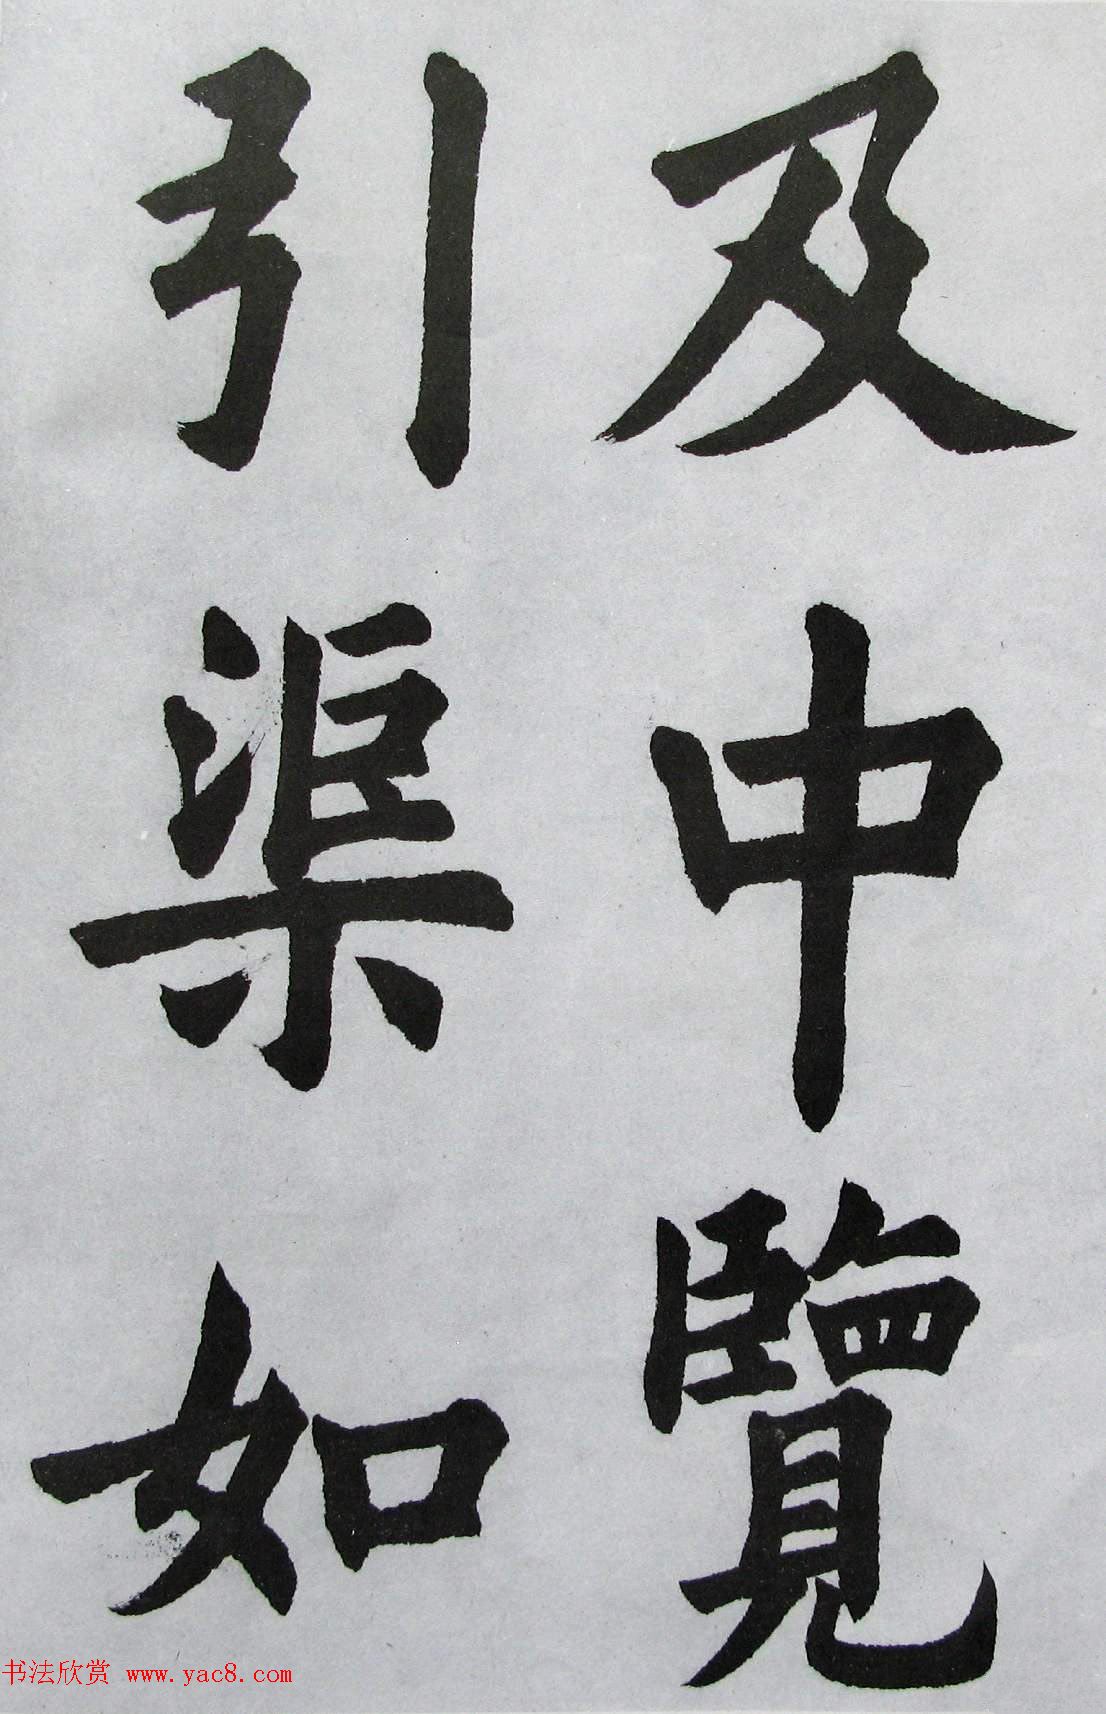 及中覽
引渠如
书法欣赏 www.yac8.com